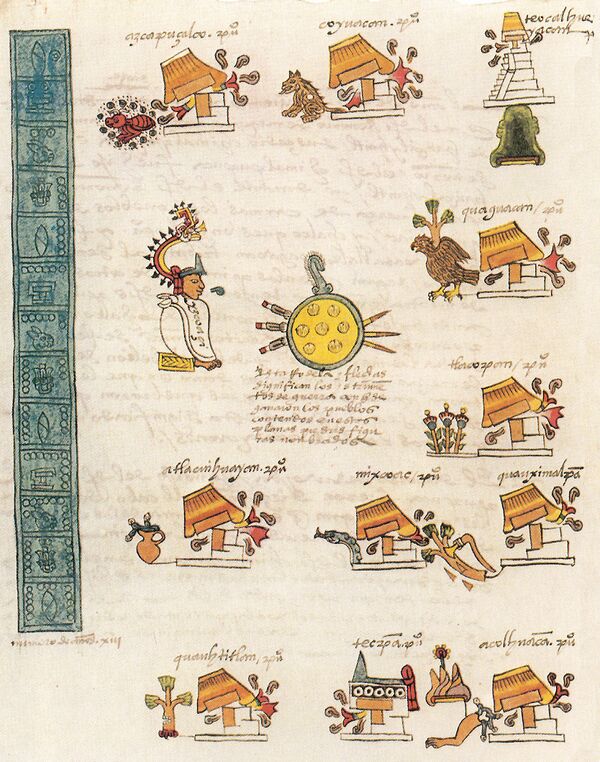 azcapuçalco. puo
coyuacan. puo
teocalhue
yacan
quaguacan / puo
significan los
tos de guerra con q se
ganaron los pueblos
contenidos en estas
planas que por figu
ras nombrados
tlacopan / puo
atlacuihuayan. puo
mixcoac / puo
quauximalpã
numero de años. xiii
quauhtitlan, puo
tecpa. puo
acolhuacã. puo